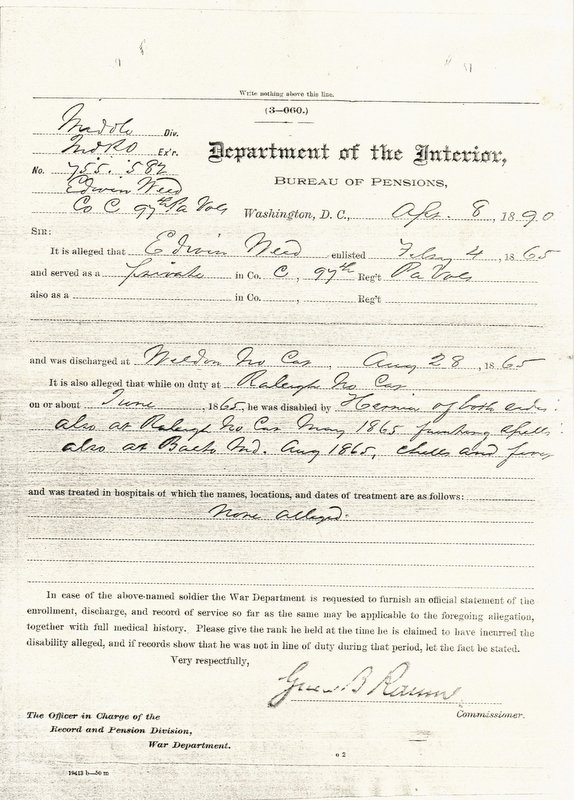 Write nothing above this line.
(3—060.)
Middle Div.
Ex'r.
No. 755.582
Edwin Weed
Co C 97th Pa Vols
Department of the Interior,
BUREAU OF PENSIONS,
Washington, D. C., Apr. 8, 1890
SIR:
It is alleged that Edwin Weed enlisted Feby 4, 1865
and served as a private in Co. C, 97th Reg't Pa Vols
also as a in Co. , Reg't
and was discharged at Weldon No Car, Aug 28, 1865
It is also alleged that while on duty at Raleigh No Car
on or about June, 1865, he was disabled by Hernia of both sides
also at Raleigh No Car May 1865 fainting spells
also at Balto Md. Aug 1865, chills and fever
and was treated in hospitals of which the names, locations, and dates of treatment are as follows:
None alleged.
In case of the above-named soldier the War Department is requested to furnish an official statement of the
enrollment, discharge, and record of service so far as the same may be applicable to the foregoing allegation,
together with full medical history. Please give the rank he held at the time he is claimed to have incurred the
disability alleged, and if records show that he was not in line of duty during that period, let the fact be stated.
Very respectfully,
Green B Raum
Commissioner.
The Officer in Charge of the
Record and Pension Division,
War Department.
o 2
19413 b—50 m